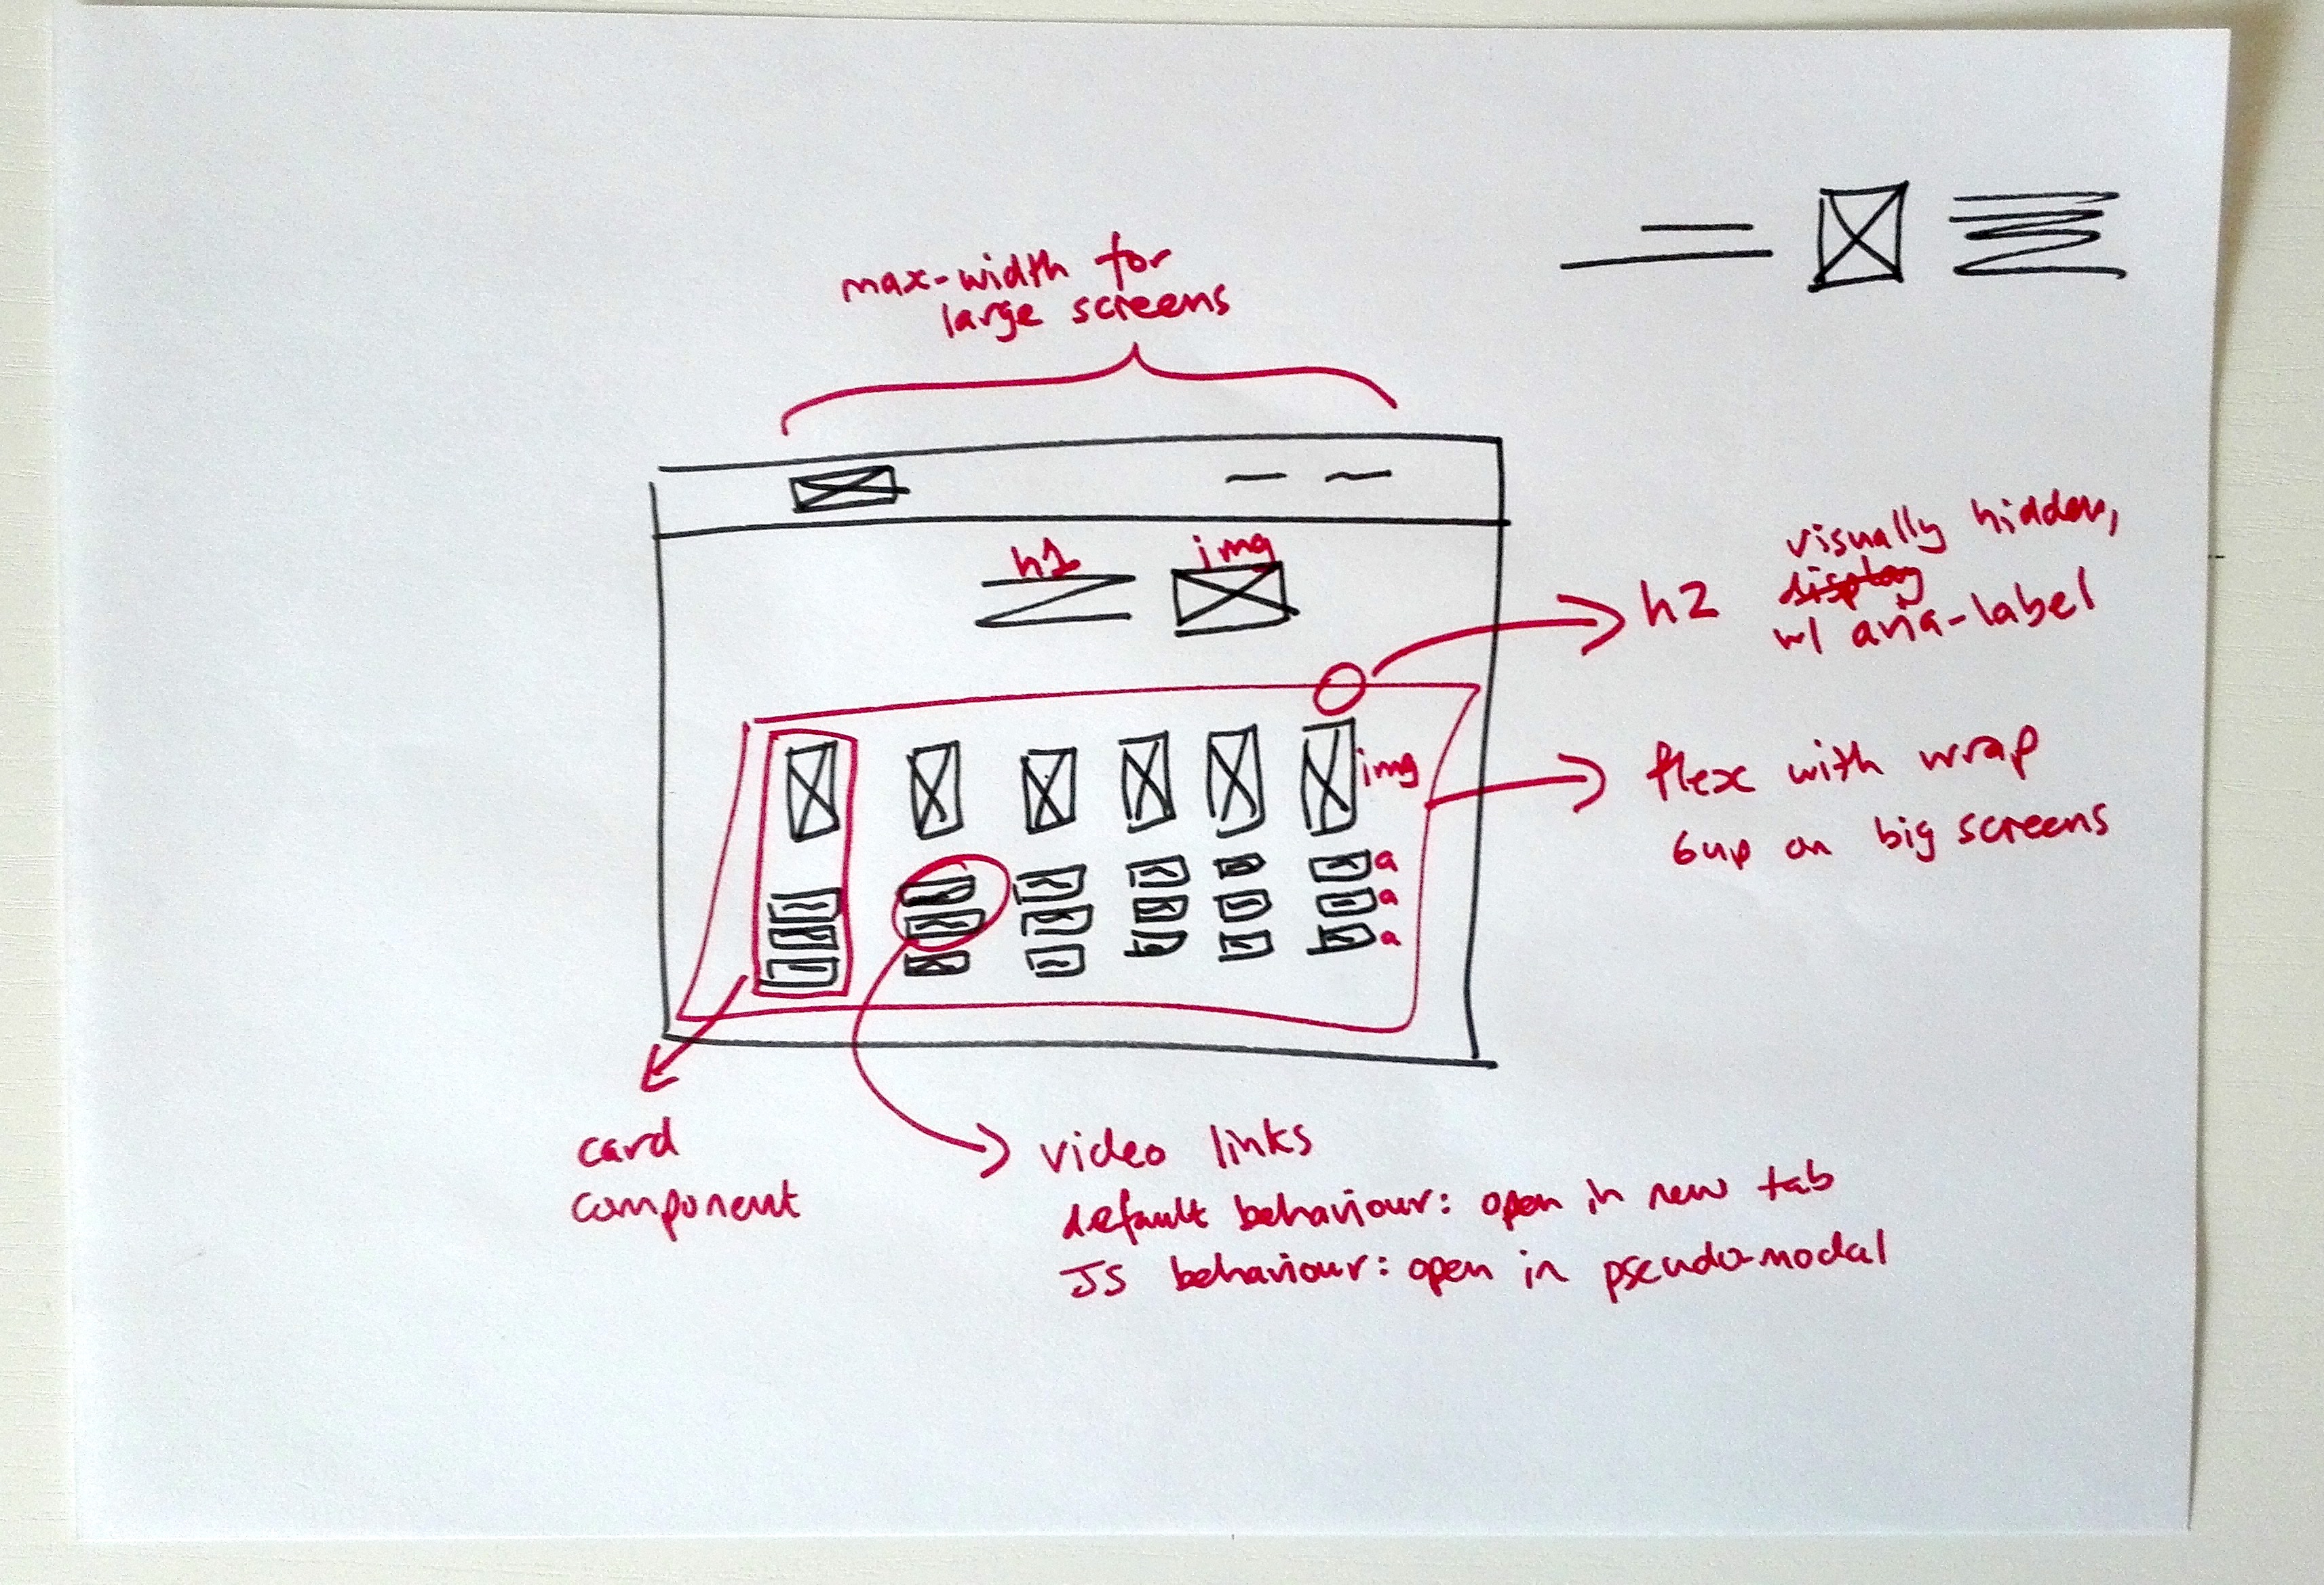 max-width for
large screens
h1
img
h2
visually hidden,
display
w/ aria-label
img
flex with wrap
6up on big screens
a
a
a
card
component
video links
default behaviour: open in new tab
JS behaviour: open in pseudo-modal